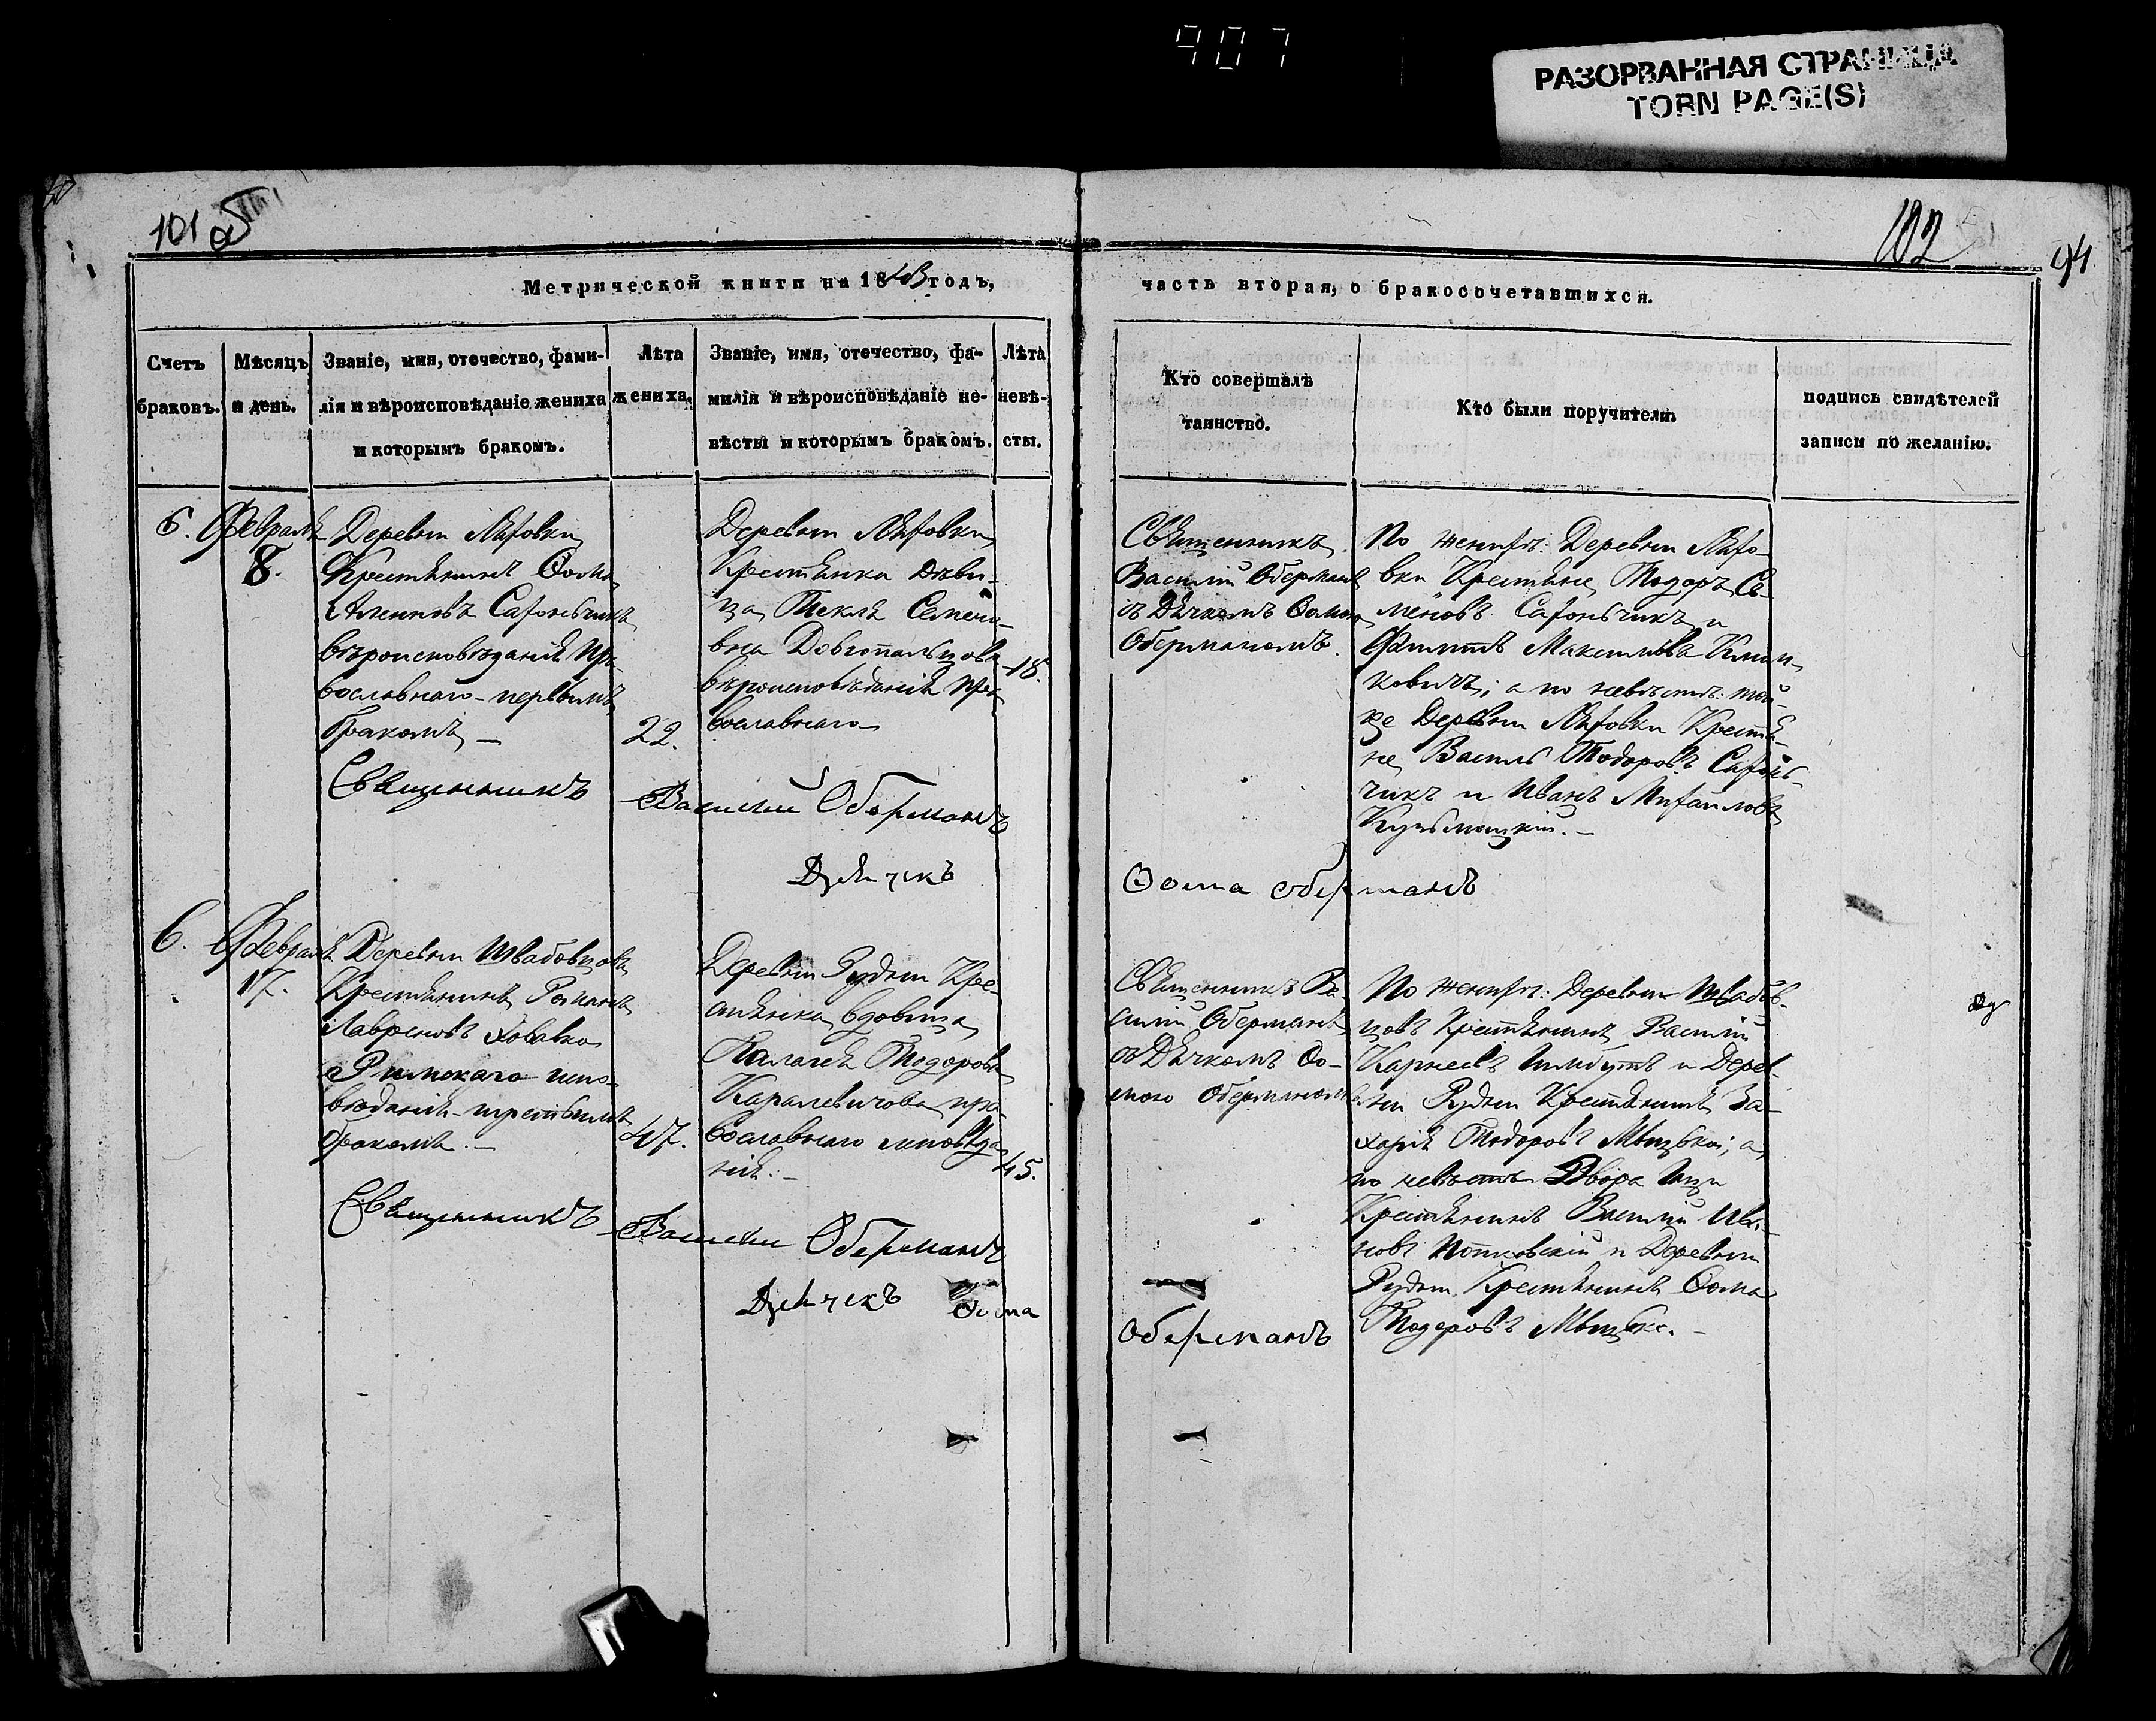 907
РАЗОРВАННАЯ СТРАНИЦА
TORN PAGE(S)
101 об
102
94
Метрической книги на 18 годъ,
часть вторая, о бракосочетавшихся.
Счетъ
браковъ.
Мѣсяцъ
и день.
Званіе, имя, отечество, фами-
лія и вѣроисповѣданіе жениха
и которымъ бракомъ.
Лѣта
жениха.
Званіе, имя, отечество, фа-
милія и вѣроисповѣданіе не-
вѣсты и которымъ бракомъ.
Лѣта
невѣ-
сты.
Кто совершалъ
таинство.
Кто были поручители.
подпись свидѣтелей
записи по желанію.
5.
Февраля
8.
Деревни Ляховки
Крестьянинъ Ѳома
Сафончикъ
вѣроисповѣданія Пра-
вославнаго первымъ
бракомъ
22.
Деревни Ляховки
Крестьянка дѣви-
ца Текля Семено-
вна Довгопальцова
вѣроисповѣданія Пра-
вославнаго
18.
Священникъ
Василій Оберманъ
съ Дьячкомъ Ѳомою
Оберманомъ.
По женихѣ: Деревни Ляхо-
вки Крестьяне, Тодоръ Се-
меновъ Сафончикъ и
Филиппъ Максимовъ Клим-
ковичъ; а по невѣстѣ: той-
же Деревни Ляховки Крестья-
не, Василь Тодоровъ Сафонь-
чикъ и Иванъ Михайловъ
Священникъ Василій Оберманъ
Дьячекъ Ѳома Оберманъ
6.
Февраля
17.
Деревни Швабовцовъ
Крестьянинъ Романъ
Лавреновъ Ховавко
Римскаго испо-
вѣданія третьимъ
бракомъ.
47.
Деревни Рудни Кре-
стьянка вдовица
Палагея Тодорова
Каралевичова пра-
вославнаго исповѣда-
нія.
45.
Священникъ Ва-
силій Оберманъ
съ Дьячкомъ Ѳо-
мою Оберманомъ.
По женихѣ: Деревни Швабов-
цовъ Крестьянинъ Василій
Карнеевъ и Дерев-
ни Рудни Крестьянинъ За-
харія Тодоровъ а
по невѣстѣ Двора
Крестьянинъ Василій Ива-
новъ и Деревни
Рудни Крестьянинъ Ѳома
Тодоровъ
Священникъ Василій Оберманъ
Дьячекъ Ѳома
Оберманъ